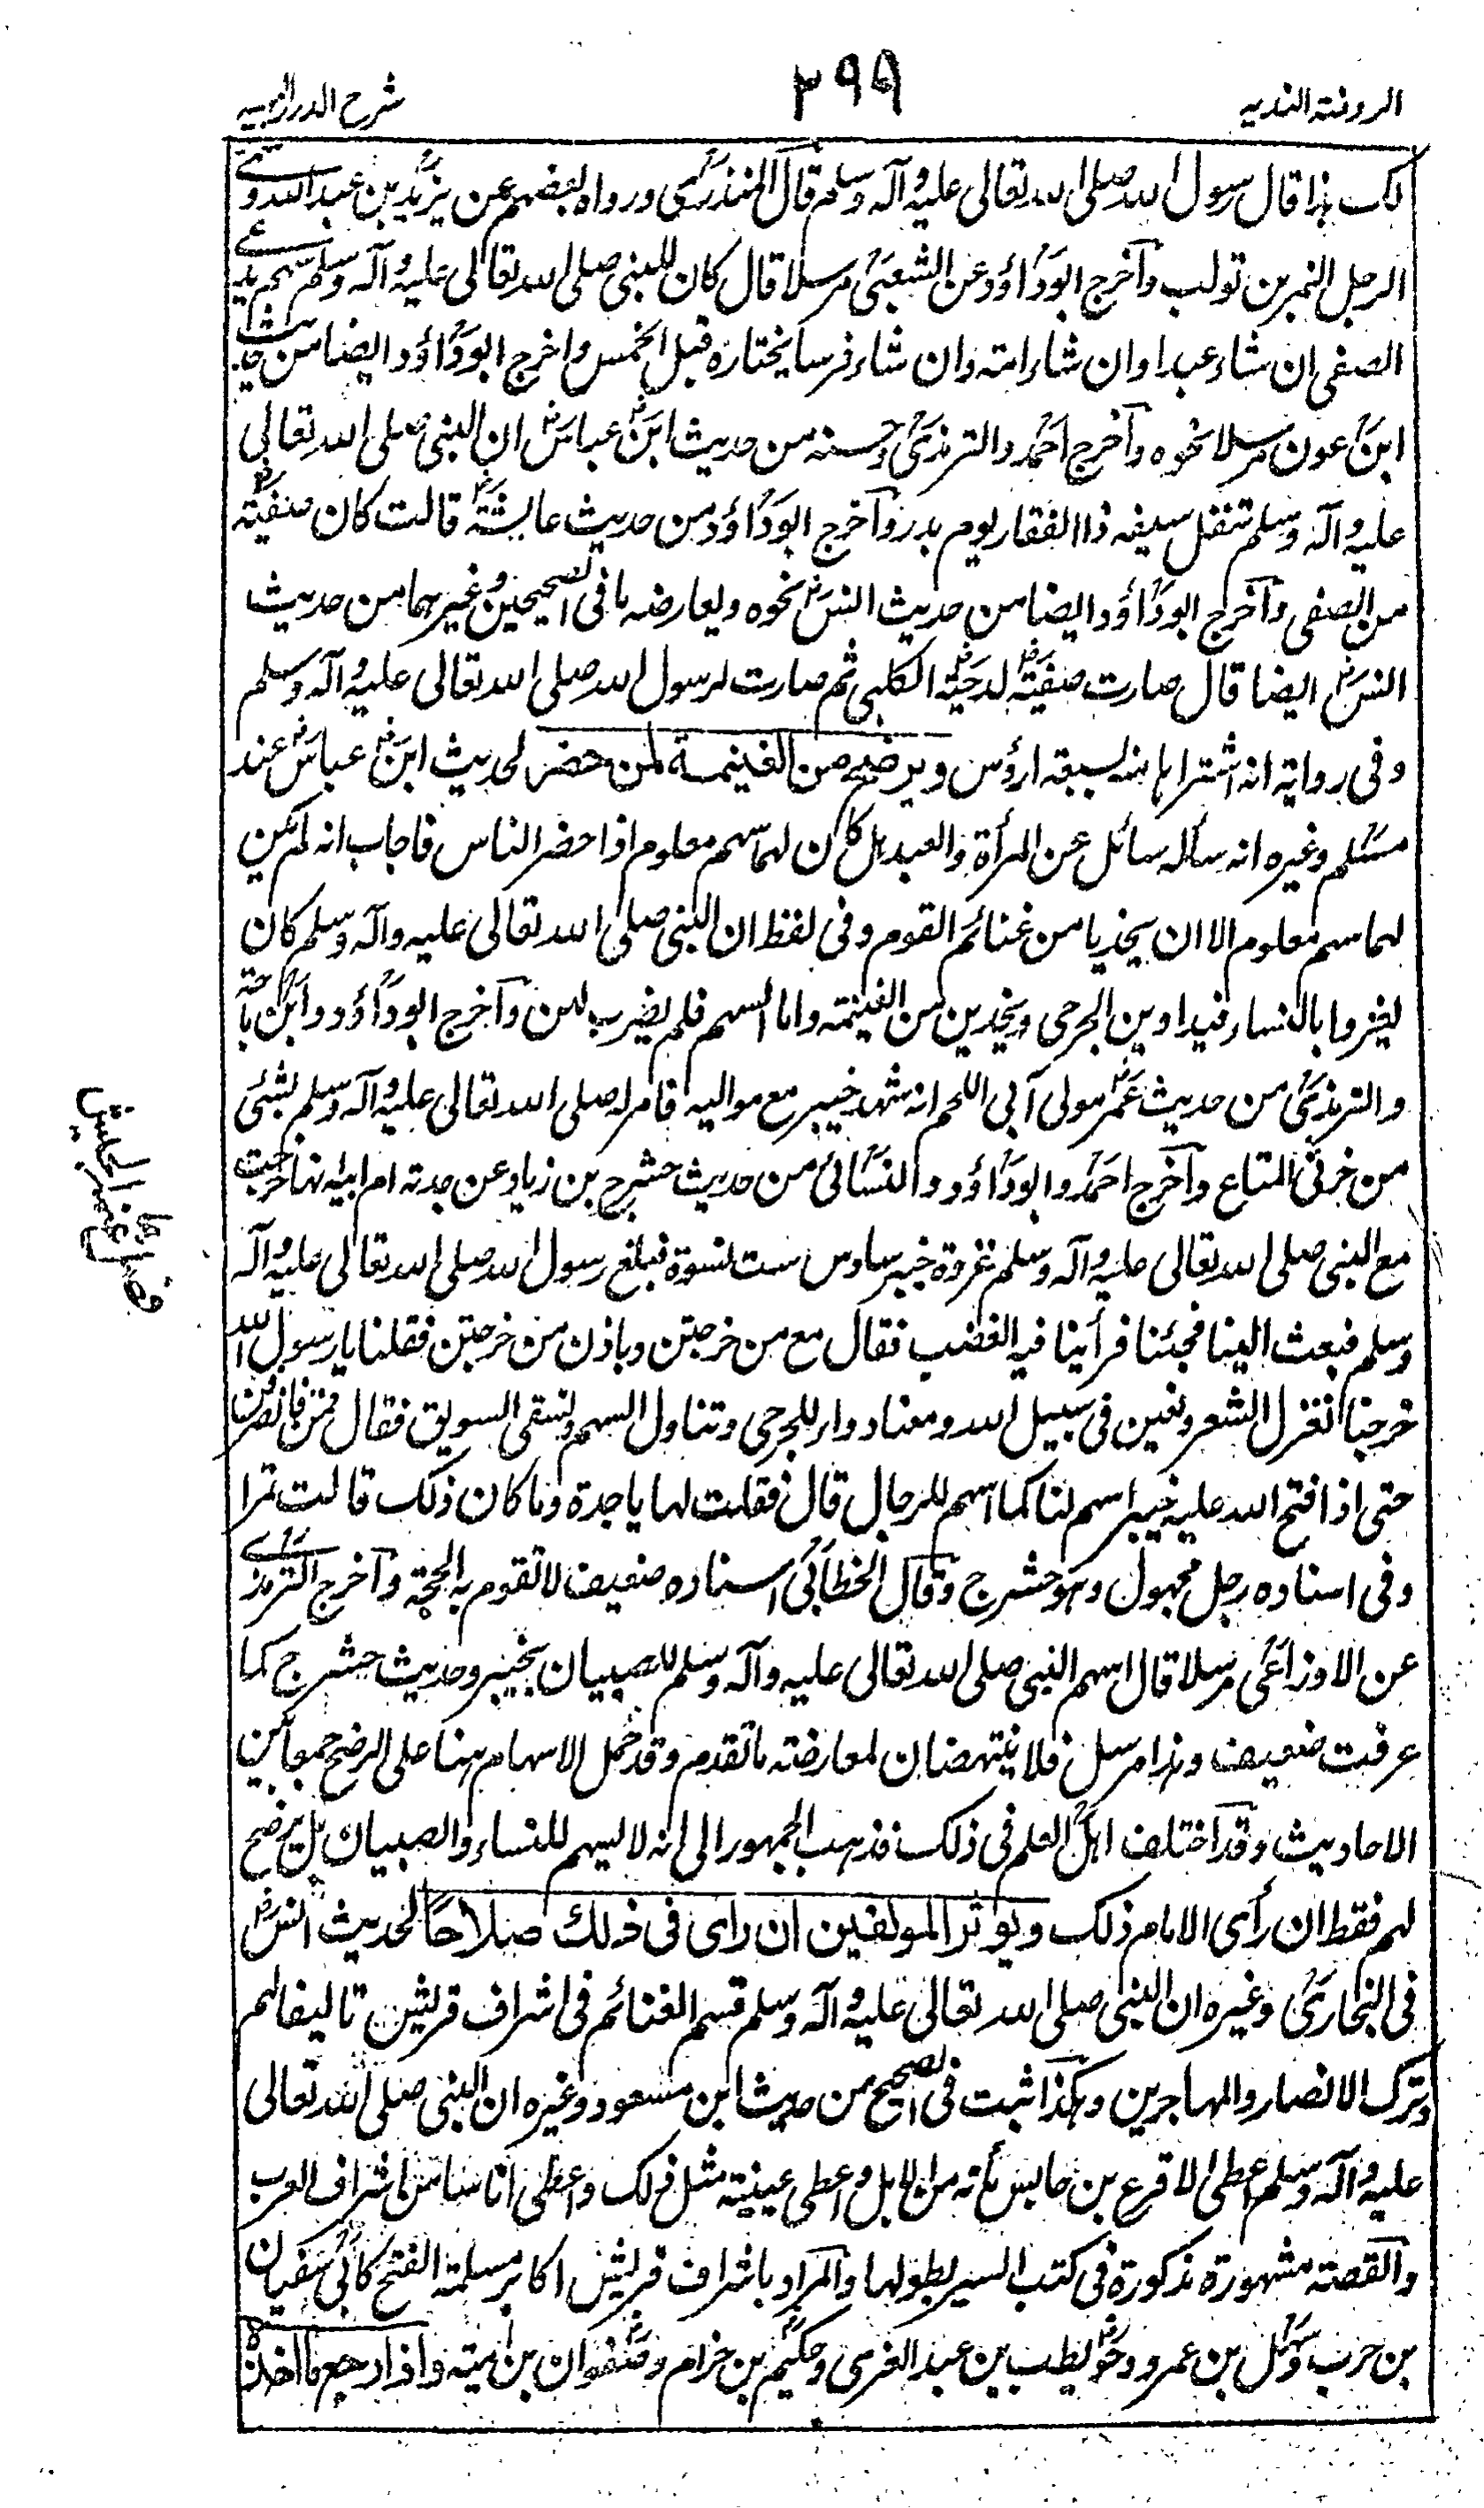 الروضة الندیه
۲۹۹
شرح الدرر البهیه
لک هذا قال رسول الله صلی الله تعالی علیه وآله وسلم قال المنذری ورواه بعضهم عن یزید بن عبد الله وسمی
الرجل النمر بن تولب وآخرج ابو داؤد عن الشعبی مرسلا قال کان للنبی صلی الله تعالی علیه وآله وسلم سهم یدعی
الصفی ان شاء عبدا وان شاء امة وان شاء فرسا یختاره قبل الخمس واخرج ابو داؤد ایضا من حدیث
ابن عون مرسلا نحوه وآخرج احمد والترمذی وحسنه من حدیث ابن عباس ان النبی صلی الله تعالی
علیه وآله وسلم تنفل سیفه ذا الفقار یوم بدر وآخرج ابو داؤد من حدیث عایشة قالت کان صفیة
من الصفی وآخرج ابو داؤد ایضا من حدیث انس نحوه ویعارضه ما فی الصحیحین وغیرهما من حدیث
انس ایضا قال صارت صفیة لدحیة الکلبی ثم صارت لرسول الله صلی الله تعالی علیه وآله وسلم
وفی روایة انه اشتراها منه بسبعة ارؤس ویرضخ من الغنیمة لمن حضر لحدیث ابن عباس عند
مسلم وغیره انه سأله سائل عن المرأة والعبد هل کان لهما سهم معلوم اذا حضر الناس فاجاب انه لم یکن
لهما سهم معلوم الا ان یحذیا من غنائم القوم وفی لفظ ان النبی صلی الله تعالی علیه وآله وسلم کان
یغزوا بالنساء فیداوین الجرحی ویحذین من الغنیمة واما السهم فلم یضرب لهن وآخرج ابو داؤد وابن ماجة
والترمذی من حدیث عمیر مولی آبی اللحم انه شهد خیبر مع موالیه فامر له صلی الله تعالی علیه وآله وسلم بشئی
من خرثی المتاع وآخرج احمد وابو داؤد والنسائی من حدیث حشرج بن زیاد عن جدته ام ابیه انها خرجت
مع النبی صلی الله تعالی علیه وآله وسلم غزوة خیبر سادس ست نسوة فبلغ رسول الله صلی الله تعالی علیه وآله
وسلم فبعث الینا فجئنا فرأینا فیه الغضب فقال مع من خرجتن وباذن من خرجتن فقلنا یا رسول الله
خرجنا نغزل الشعر ونعین فی سبیل الله ومعنا دواء للجرحی ونناول السهم ونسقی السویق فقال قمن فانصرفن
حتی اذا فتح الله علیه خیبر اسهم لنا کما اسهم للرجال قال فقلت لها یا جدة وما کان ذلک قالت تمرا
وفی اسناده رجل مجهول وهو حشرج وقال الخطابی اسناده ضعیف لا تقوم به الحجة وآخرج الترمذی
عن الاوزاعی مرسلا قال اسهم النبی صلی الله تعالی علیه وآله وسلم للصبیان بخیبر وحدیث حشرج کما
عرفت ضعیف وهذا مرسل فلا ینتهضان لمعارضة ما تقدم وقد حمل الاسهام هنا علی الرضخ جمعا بین
الاحادیث وقد اختلف اهل العلم فی ذلک فذهب الجمهور الی انه لا یسهم للنساء والصبیان بل یرضخ
لهم فقط ان رأی الامام ذلک ویوثر المولفین ان رای فی ذلک صلاحا لحدیث انس
فی البخاری وغیره ان النبی صلی الله تعالی علیه وآله وسلم قسم الغنائم فی اشراف قریش تالیفا لهم
وترک الانصار والمهاجرین وهکذا ثبت فی الصحیح من حدیث ابن مسعود وغیره ان النبی صلی الله تعالی
علیه وآله وسلم اعطی الاقرع بن حابس مأته من الابل واعطی عیینة مثل ذلک واعطی اناسا من اشراف العرب
والقصة مشهورة مذکورة فی کتب السیر بطولها والمراد باشراف قریش اکابر مسلمة الفتح کابی سفیان
بن حرب وسهل بن عمرو وحویطب بن عبد العزی وحکیم بن حزام وصفوان بن امیة واذا رجع ما اخذه